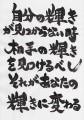 自分の輝き
が見つからない時
相手の輝き
を見つけるべし
それがあなたの
輝きに変わる